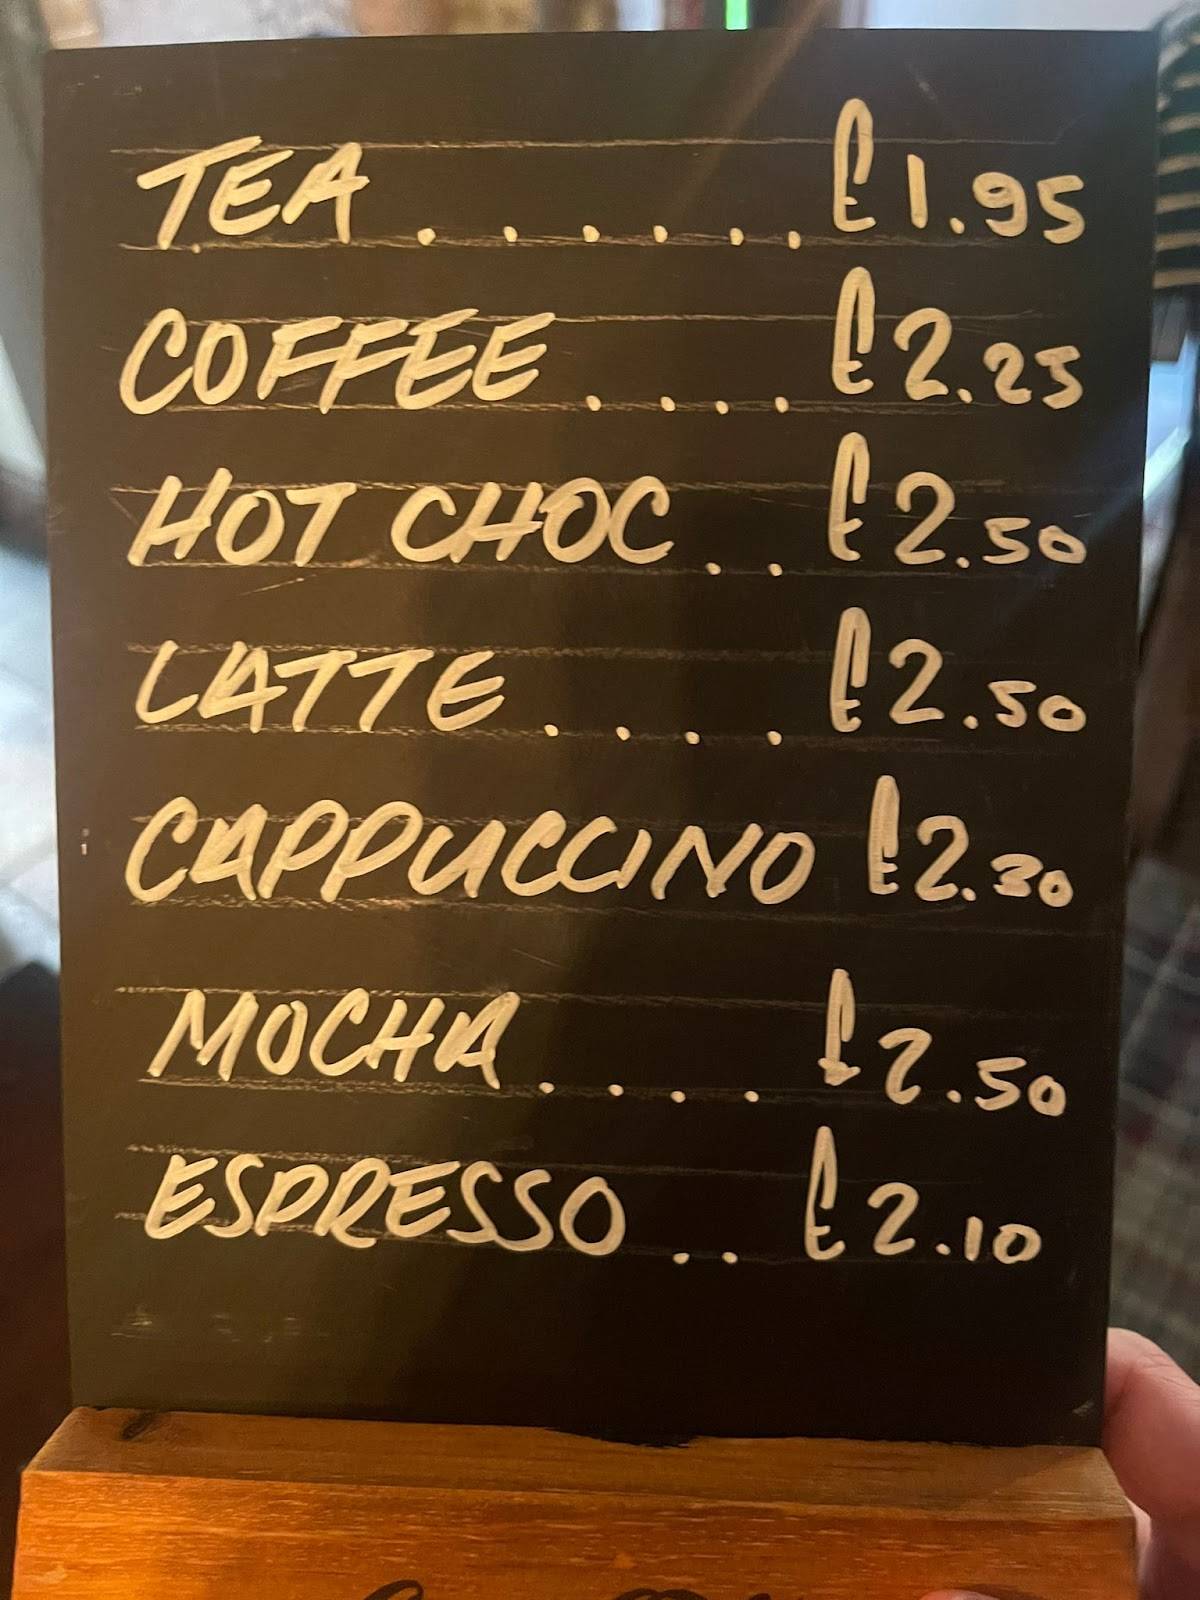 TEA . . . . . . £1.95
COFFEE . . . . £2.25
HOT CHOC . . £2.50
LATTE . . . . £2.50
CAPPUCCINO £2.30
MOCHA . . . . £2.50
ESPRESSO . . £2.10